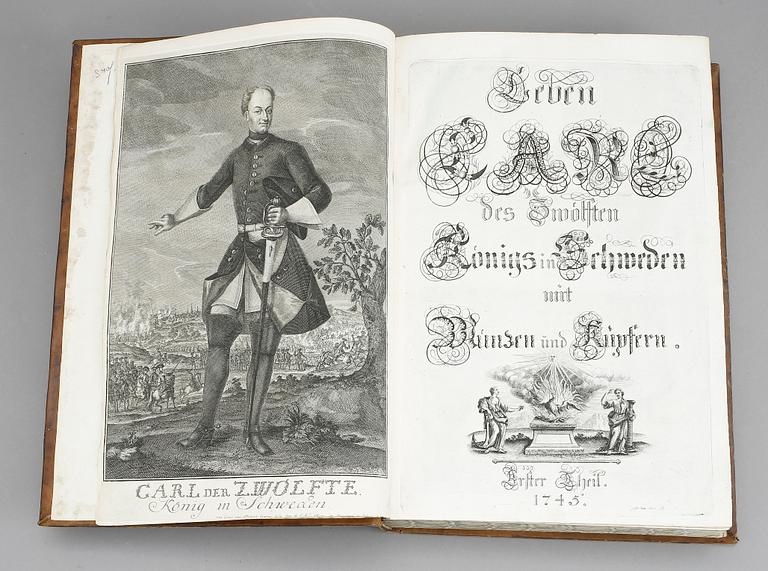 CARL DER ZWÖLFTE.
König in Schweden
Leben
CARL
des Zwölften
Königs in Schweden
mit
Münzen und Kupfern.
Erster Theil.
1745.